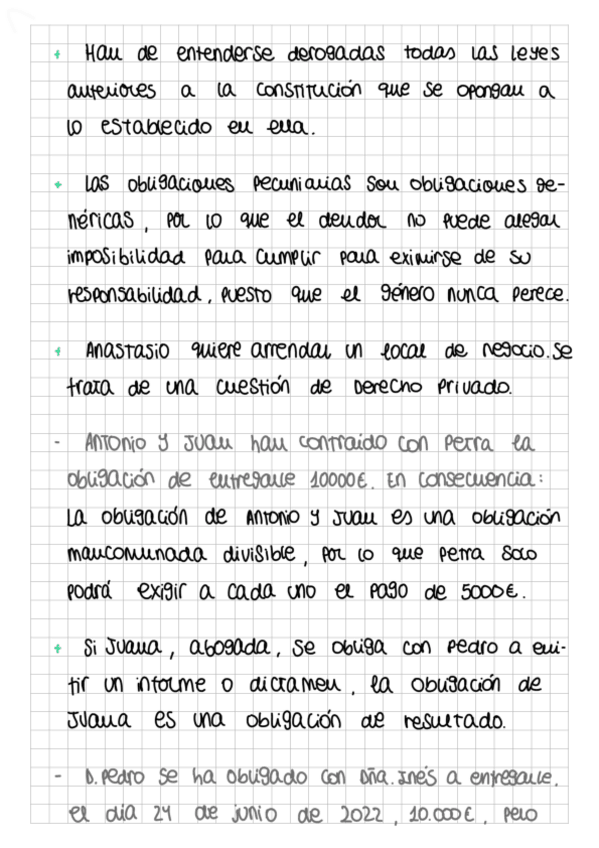 + Han de entenderse derogadas todas las leyes
anteriores a la Constitución que se opongan a
lo establecido en ella.
+ Las obligaciones pecuniarias son obligaciones ge-
néricas, por lo que el deudor no puede alegar
imposibilidad para cumplir para eximirse de su
responsabilidad, puesto que el género nunca perece.
+ Anastasio quiere arrendar un local de negocio. Se
trata de una cuestión de Derecho Privado.
- Antonio y Juan han contraido con Petra la
obligación de entregarle 10000€. En consecuencia:
La obligación de Antonio y Juan es una obligación
mancomunada divisible, por lo que Petra solo
podrá exigir a cada uno el pago de 5000€.
+ Si Juana, abogada, se obliga con Pedro a emi-
tir un informe o dictamen, la obligación de
Juana es una obligación de resultado.
- D. Pedro se ha obligado con Dña. Inés a entregarle,
el día 24 de junio de 2022, 10.000€, pero